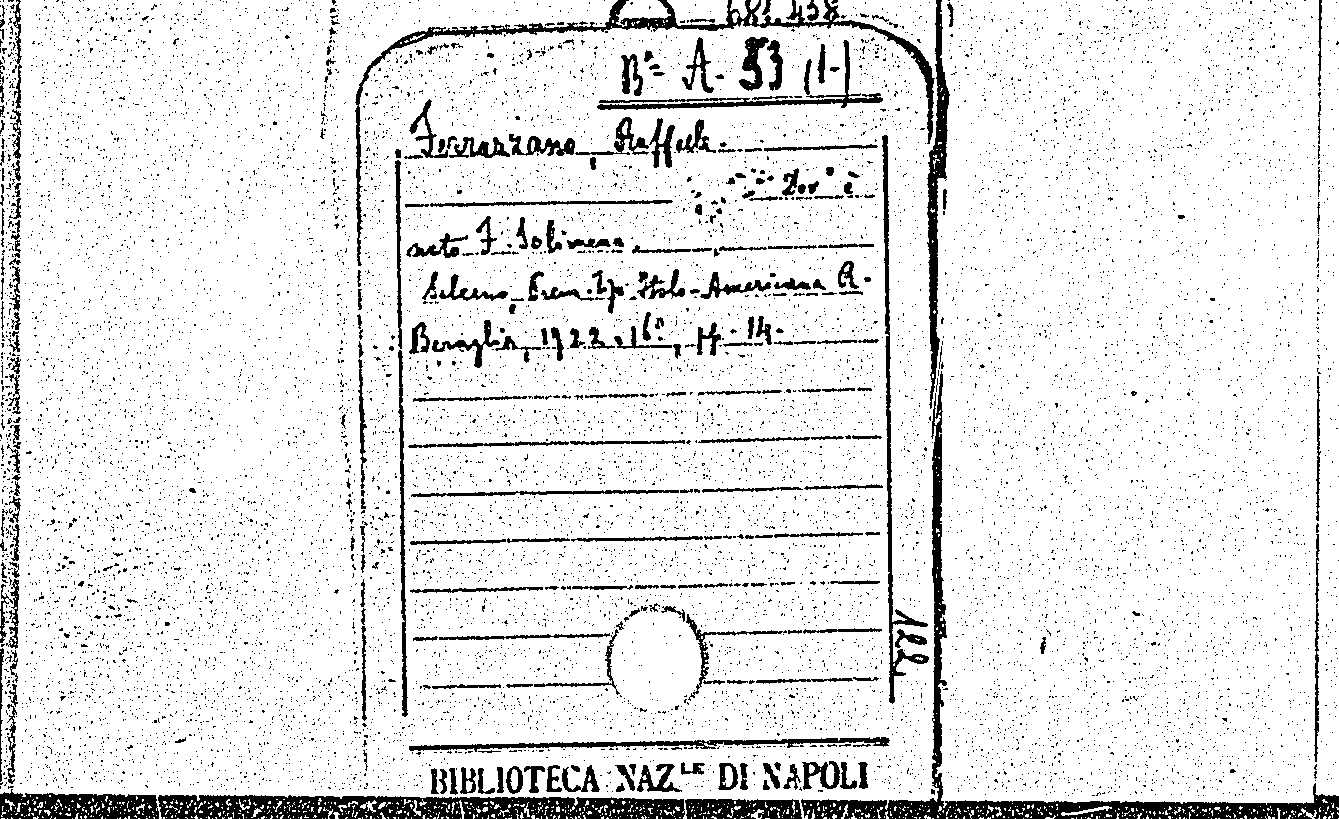 681.438
Bª A. 53 (1-)
Ferrazzano, Raffaele.
Dov' è
nato F. Solimena.
Salerno, Prem. Tip. Italo-Americana R.
Beraglia, 1922, 16°, pp. 14.
122
BIBLIOTECA NAZ.LE DI NAPOLI